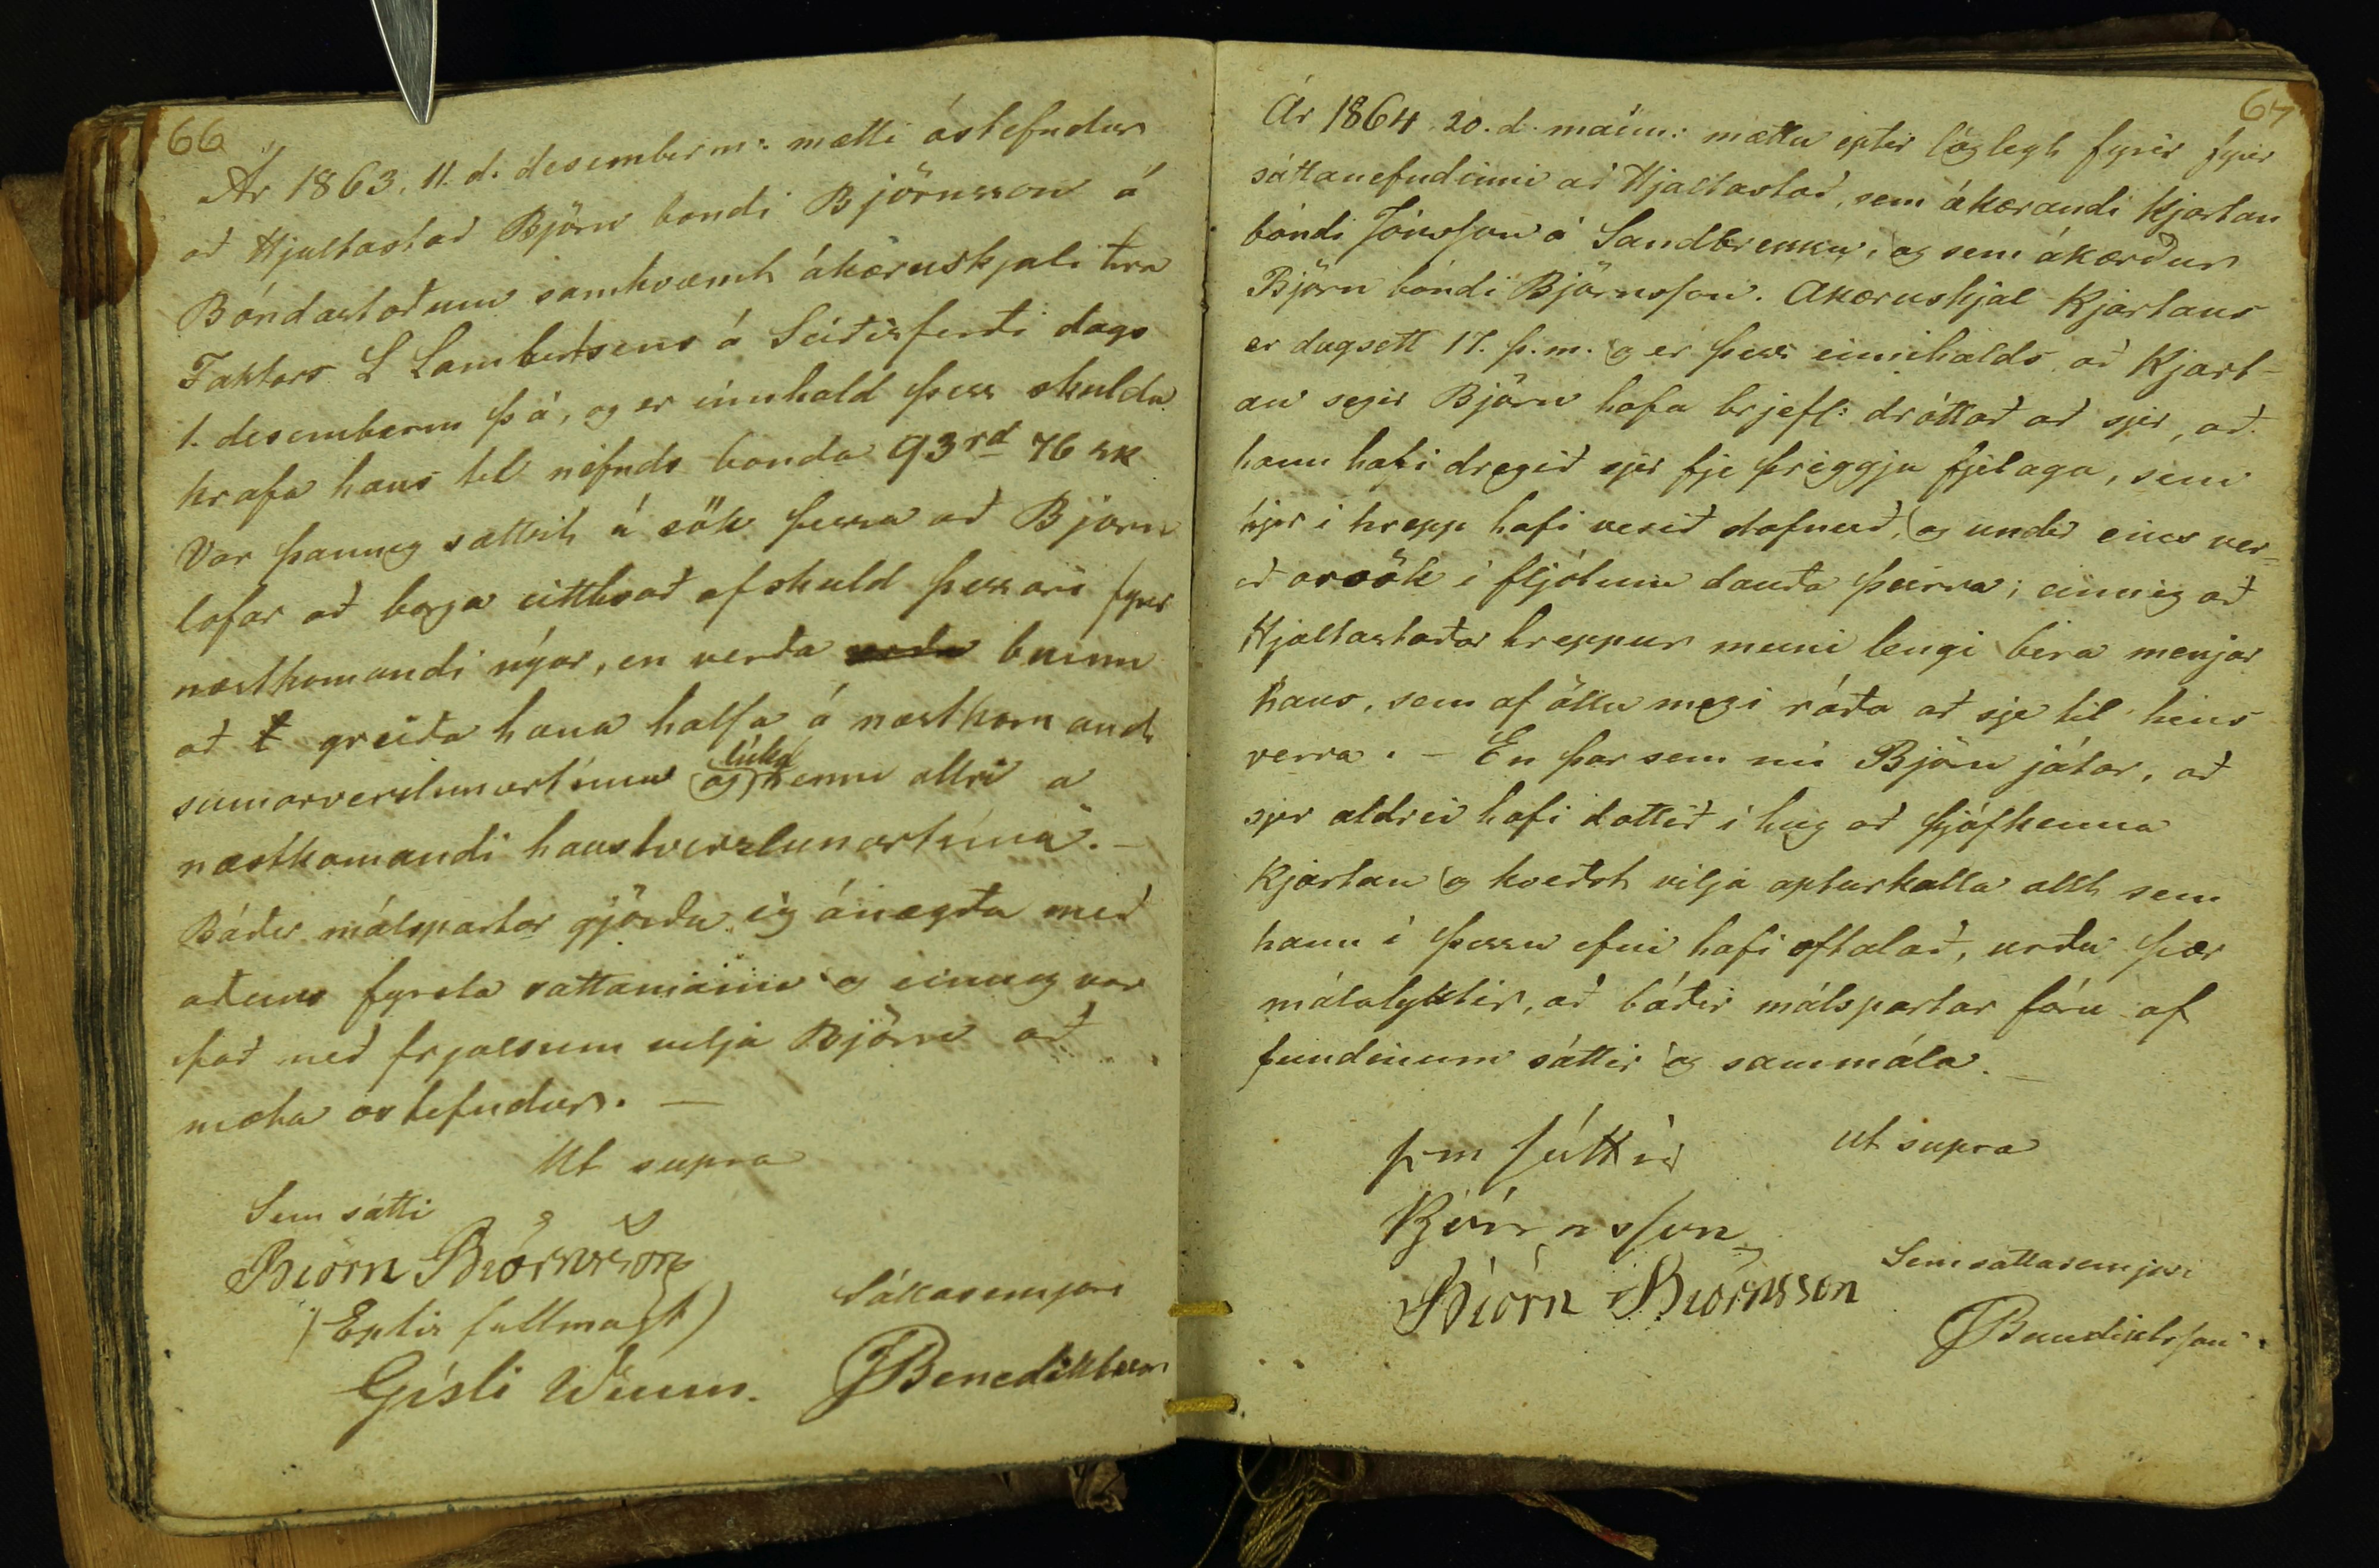 66
Ár 1863, 11. d. desemberm: mætti óstefndur
að Hjaltastað Björn bondi Björnsson á
Bóndastoðum samkvæmt ákæruskjali fra
Faktors L Lambertsens á Seiðisfirði dags
1. desemberm þ á, og er innihald þess skulda
krafa hans til nefnds bonda 93rd 76 sk
Var þannig sættst á sök þessa að Björn
lofar að borga eitthvað af skuld þessari fyrir
næstkomandi nýár, en verða buinn
að greiða hana halfa á næstkomandi
sumarverslunartíma og lúka henni allri a
næstkomandi haustverslunartíma. –
Báðir málspartar gjörðu sig ánægða með
aðeins fyrsta sattamann og einnig var
það með frjalsum vilja Björn að
mæta ostefndur. —
Ut supra
Sem sátti
Biörn Biörnsson
(Eptir fullmagt)
Gísli Wium.
Sáttasemjari
JBenediktsson
67
Ár 1864, 20. d. maím: mættu eptir löglegt fyrir fyrir
sáttanefndinni að Hjaltastað, sem ákærandi Kjartan
bóndi Jónsson á Sandbrekku, og sem ákærður
Björn bóndi Björnsson. Akæruskjal Kjartans
er dagsett 17. þ. m. og er þess innihalds, að Kjart-
an segir Björn hafa brjefl: dróttað að sjer, að
hann hafi dregið sjer fje þriggja fjelaga, sem
hjer i hrepp hafi verið dafnað, og undir eins ver-
ið orsök í fljótum dauða þeirra; einnig að
Hjaltastaðar hreppur muni lengi bera menjar
hans, sem af öllu megi ráða að sje til hins
verra. – En þar sem nú Björn játar, að
sjer aldrei hafi dottið í hug að þjófkenna
Kjartan og kveðst vilja apturkalla allt sem
hann í þessu efni hafi oftalað, urðu þær
málalyktir, að báðir málspartar fóru af
fundinum sáttir og sammála. –
Ut supra
sem sáttir
Björnsson
Biörn Biörnsson
Sem sáttasemjari
JBenediktsson